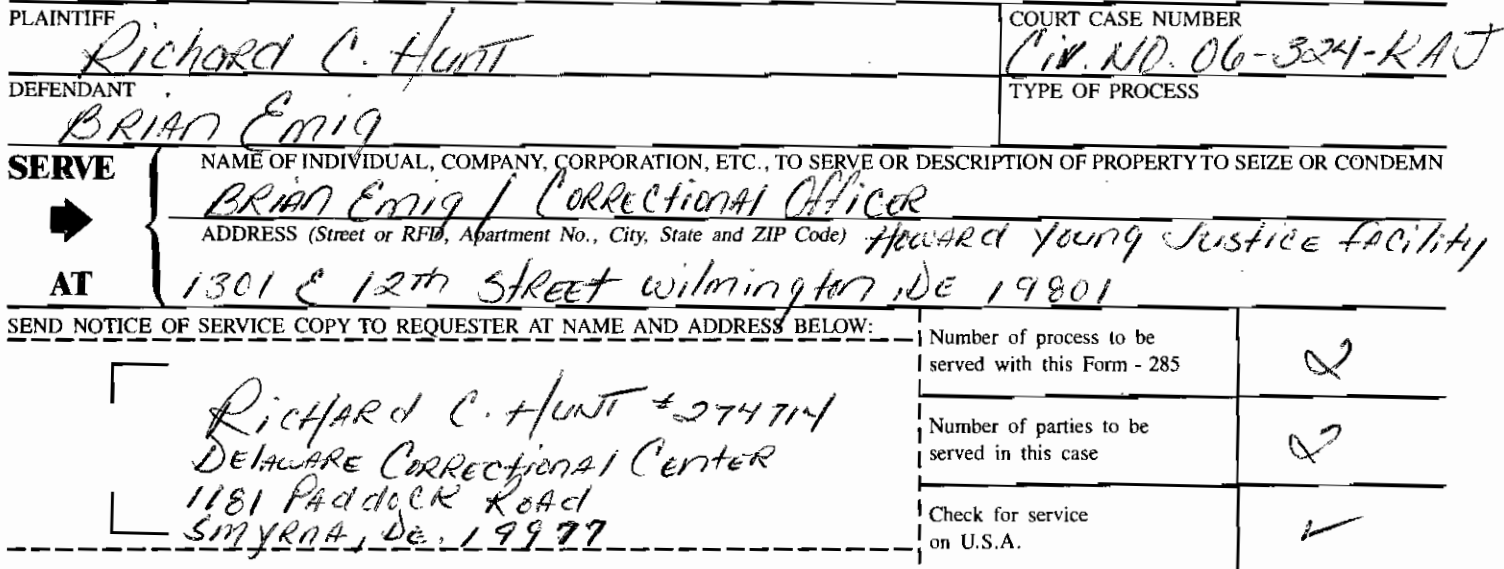 PLAINTIFF
Richard C. Hunt
COURT CASE NUMBER
Civ. NO. 06-324-KAJ
DEFENDANT
BRIAN Emig
TYPE OF PROCESS
SERVE
AT
NAME OF INDIVIDUAL, COMPANY, CORPORATION, ETC., TO SERVE OR DESCRIPTION OF PROPERTY TO SEIZE OR CONDEMN
BRIAN Emig / CORRECTIONAl OfficER
ADDRESS (Street or RFD, Apartment No., City, State and ZIP Code) HOWARd Young Justice fAcility
1301 E 12th StREEt wilmington, DE 19801
SEND NOTICE OF SERVICE COPY TO REQUESTER AT NAME AND ADDRESS BELOW:
RicHARd C. HUNT #274714
DElAWARE CORREctionAl CentER
1181 PAddOCK ROAd
SmYRnA, DE. 19977
Number of process to be
served with this Form - 285
2
Number of parties to be
served in this case
2
Check for service
on U.S.A.
✓